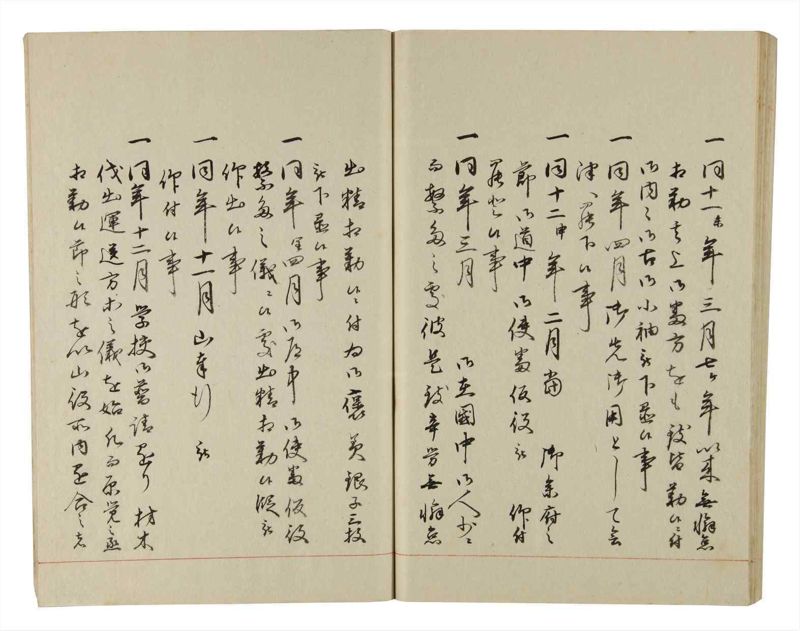 一同十一年未三月七ケ年以来無懈怠
相勤其上御数方をも致皆勤候ニ付
御内々御古御小袖被下置候事
一同年四月御先御用として会
津へ罷下候事
一同十二申年二月当 御参府之
節御道中御使番仮役被 仰付
罷登候事
一同年三月 御在国中御人少ニ
而繁多之処彼是致辛労無懈怠
出精相勤候ニ付為御褒美銀子三枚
被下置候事
一同年四月御道中御使番仮役
繁多之儀ニ候処出精相勤候段被
仰出候事
一同年十一月山奉行被
仰付候事
一同年十二月学校御普請有り材木
伐出運送方等之儀を始凡而
相勤候節之形を以山役所内を